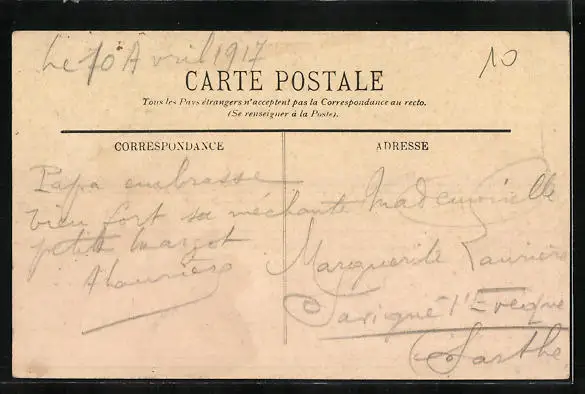 Le 10 Avril 1917
10
CARTE POSTALE
Tous les Pays étrangers n'acceptent pas la Correspondance au recto.
(Se renseigner à la Poste).
CORRESPONDANCE
ADRESSE
Papa embrasse
bien fort sa méchante
petite Margot
Mademoiselle
Marguerite Laurière
Savigné l'Evêque
Sarthe